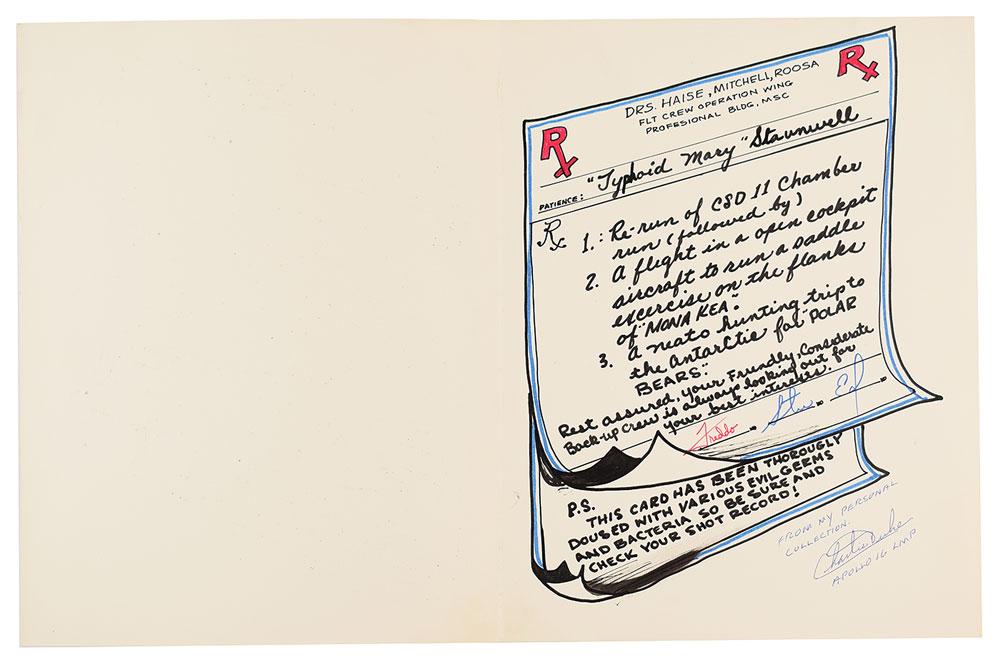 Rx
Rx
DRS. HAISE, MITCHELL, ROOSA
FLT CREW OPERATION WING
PROFESIONAL BLDG, MSC
PATIENCE: "Typhoid Mary" Staunwell
Rx
1.: Re-run of CSD 11 Chamber
run (followed by)
2. A flight in a open cockpit
aircraft to run a saddle
excercise on the flanks
of "MONA KEA".
3. A neato hunting trip to
the Antarctic for "POLAR
BEARS".
Rest assured, your Friendly, Considerate
Back-up Crew is always looking out for
your best interests.
Freddo . Stu . Ed .
P.S.
THIS CARD HAS BEEN THOROUGLY
DOUSED WITH VARIOUS EVIL GEEMS
AND BACTERIA SO BE SURE AND
CHECK YOUR SHOT RECORD!
FROM MY PERSONAL
COLLECTION.
Charlie Duke
APOLLO 16 LMP